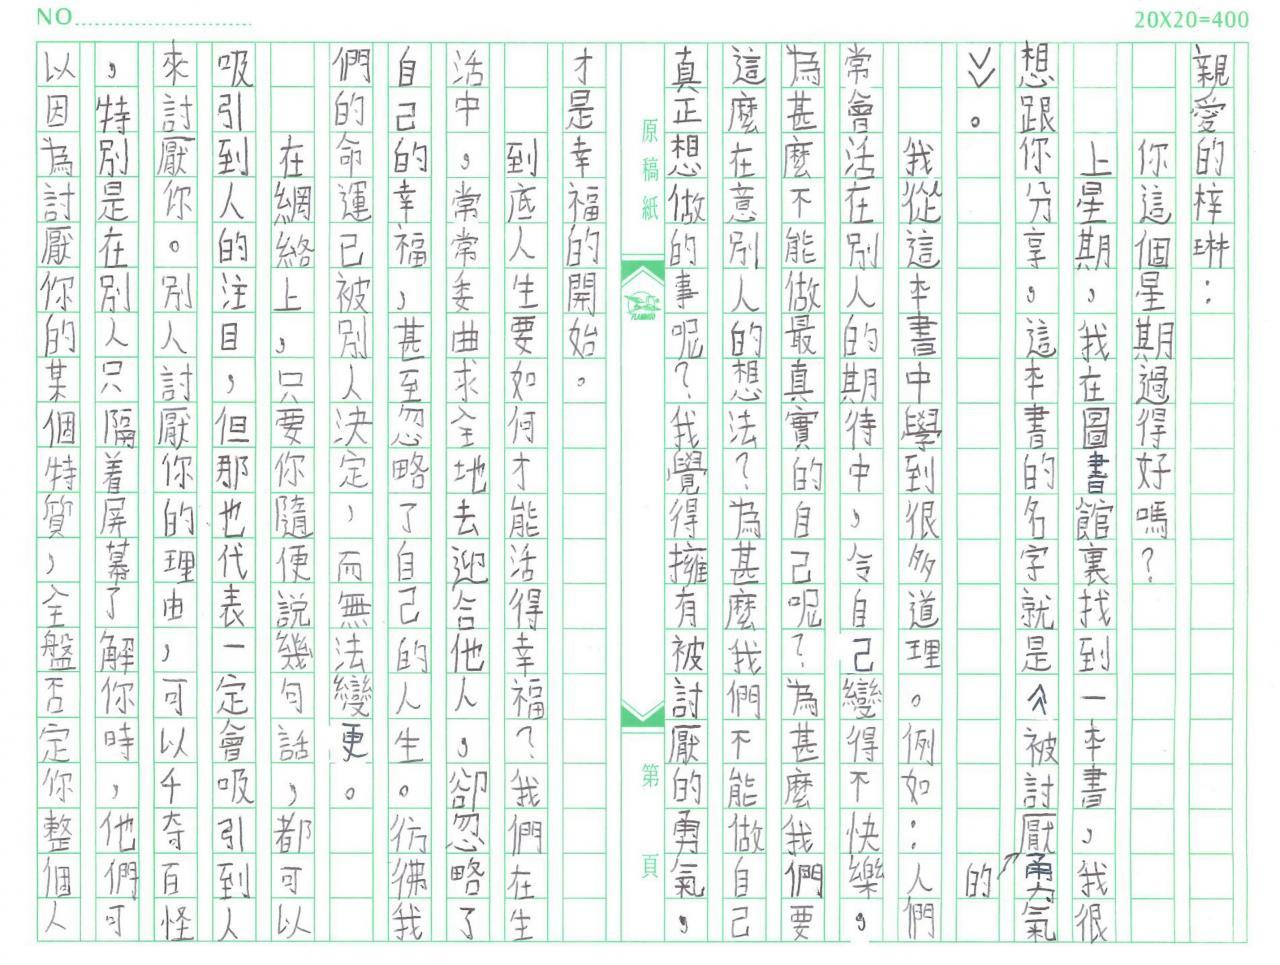 NO.
20X20=400
親愛的梓琳：
你這個星期過得好嗎？
上星期，我在圖書館裏找到一本書，我很
想跟你分享，這本書的名字就是《被討厭勇氣
的
》。
我從這本書中學到很多道理。例如：人們
常會活在別人的期待中，令自己變得不快樂，
為甚麼不能做最真實的自己呢？為甚麼我們要
這麼在意別人的想法？為甚麼我們不能做自己
真正想做的事呢？我覺得擁有被討厭的勇氣，
原稿紙
FLAMINGO
第 頁
才是幸福的開始。
到底人生要如何才能活得幸福？我們在生
活中，常常委曲求全地去迎合他人，卻忽略了
自己的幸福，甚至忽略了自己的人生。彷彿我
們的命運已被別人決定，而無法變更。
在網絡上，只要你隨便說幾句話，都可以
吸引到人的注目，但那也代表一定會吸引到人
來討厭你。別人討厭你的理由，可以千奇百怪
，特別是在別人只隔着屏幕了解你時，他們可
以因為討厭你的某個特質，全盤否定你整個人